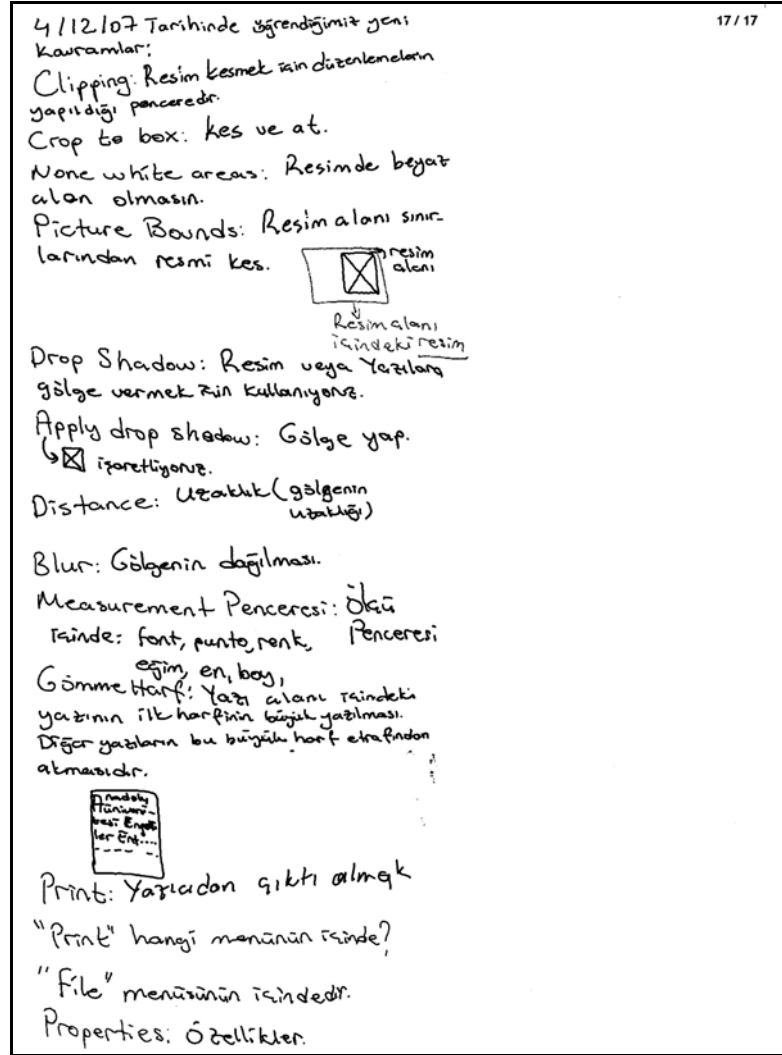 4/12/07 Tarihinde öğrendiğimiz yeni
17 / 17
Kavramlar:
Clipping: Resim kesmek için düzenlemelerin
yapıldığı penceredir.
Crop to box: kes ve at.
None white areas: Resimde beyaz
alan olmasın.
Picture Bounds: Resim alanı sınır-
larından resmi kes.
resim
alanı
Resim alanı
içindeki resim
Drop Shadow: Resim veya Yazılara
gölge vermek için kullanıyoruz.
Apply drop shadow: Gölge yap.
işaretliyoruz.
Distance: Uzaklık (gölgenin
uzaklığı)
Blur: Gölgenin dağılması.
Measurement Penceresi: Ölçü
içinde: font, punto, renk, Penceresi
eğim, en, boy,
Gömme Harf: Yazı alanı içindeki
yazının ilk harfinin büyük yazılması.
Diğer yazıların bu büyük harf etrafından
akmasıdır.
Anadolu
Üniversi-
tesi Engel
ler Ent....
Print: Yazıcıdan çıktı almak
"Print" hangi menünün içinde?
"File" menüsünün içindedir.
Properties: Özellikler.